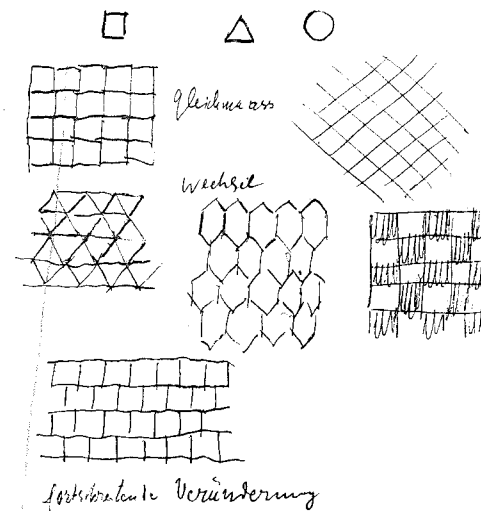 gleichmass
Wechsel
fortschreitende Veränderung